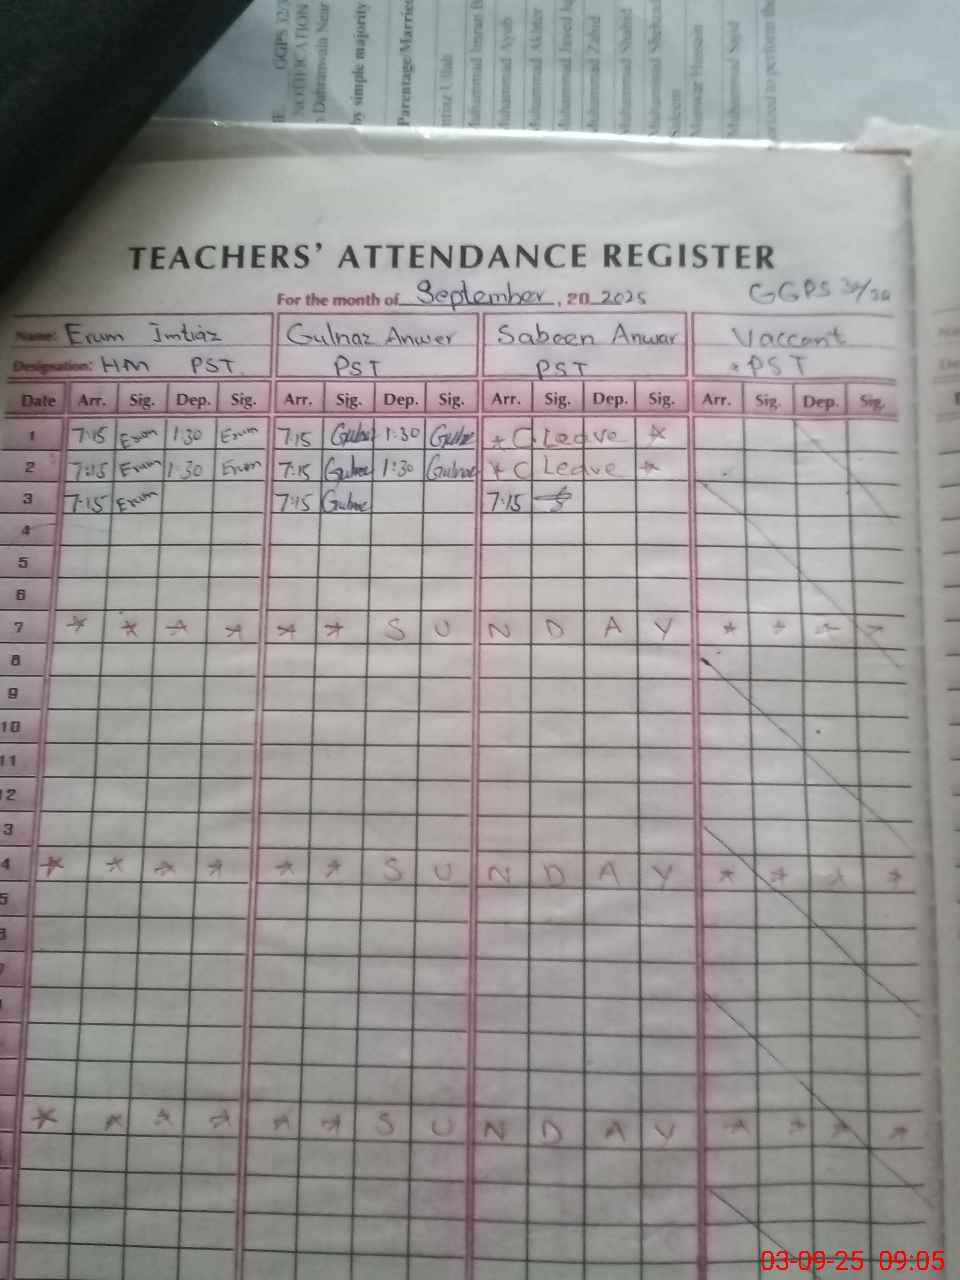 GGPS 32/3
NOTIFICATION
Dahranwala Near
by simple majority
Parentage/Married
Imtiaz Ullah
Muhammad Imran B
Muhammad Ayub
Muhammad Akhter
Muhammad Javed Iq
Muhammad Zahid
Muhammad Shahid
Muhammad Shehzad
Saleem
Manwar Hussain
Muhammad Sajid
to perform the
TEACHERS' ATTENDANCE REGISTER
For the month of September, 20 2025
GGPS
Name: Erum Imtiaz Gulnaz Anwer Sabeen Anwar Vaccant
Designation: HM PST PST PST * PST
Date Arr. Sig. Dep. Sig. Arr. Sig. Dep. Sig. Arr. Sig. Dep. Sig. Arr. Sig. Dep. Sig.
1 7:15 Erum 1:30 Erum 7:15 Gulnaz 1:30 Gulnaz * C Leave *
2 7:15 Erum 1:30 Erum 7:15 Gulnaz 1:30 Gulnaz * C Leave *
3 7:15 Erum 7:15 Gulnaz 7:15
4
5
6
7 * * * * * * S U N D A Y * * * *
8
9
10
11
12
3
4 * * * * * * S U N D A Y * * * *
5
* * * * * * S U N D A Y * * * *
03-09-25 09:05